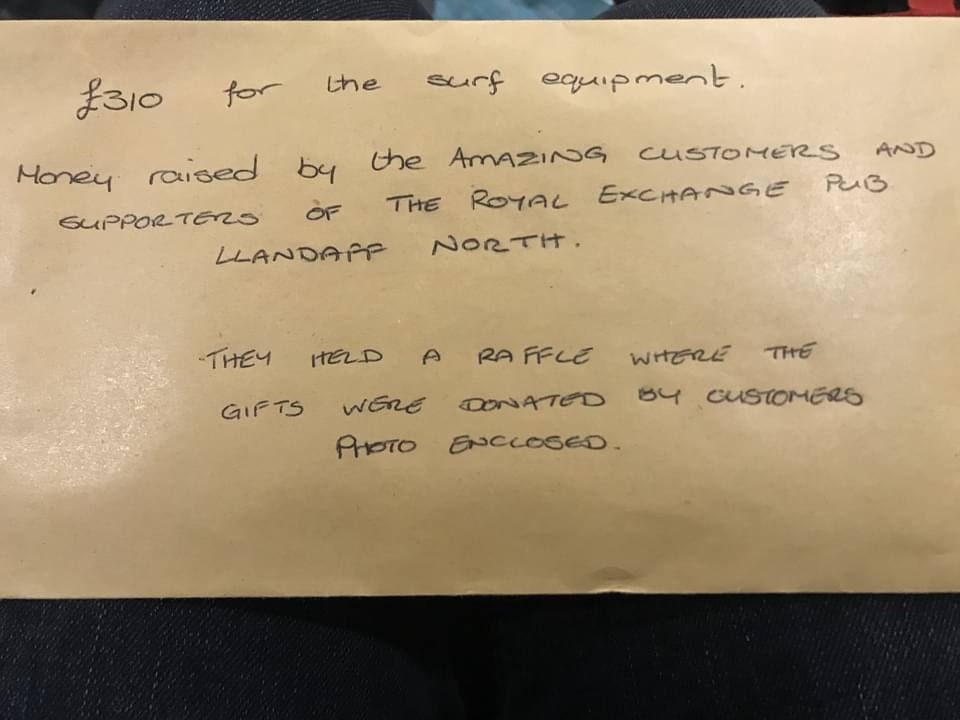 £310 for the surf equipment.
Money raised by the AMAZING CUSTOMERS AND
SUPPORTERS OF THE ROYAL EXCHANGE PUB
LLANDAFF NORTH.
THEY HELD A RAFFLE WHERE THE
GIFTS WERE DONATED BY CUSTOMERS
PHOTO ENCLOSED.